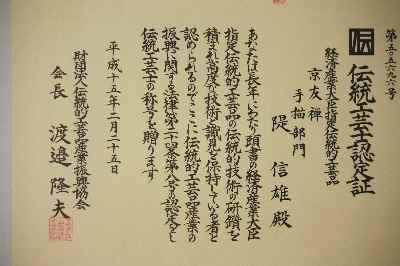 第五五六九六号
伝
伝統工芸士認定証
経済産業大臣指定伝統的工芸品
京友禅
手描部門
隄 信雄殿
あなたは長年にわたり頭書の経済産業大臣
指定伝統的工芸品の伝統的技術の研鑽を
積まれ高度の技術と識見を保持している者と
認められるのでここに伝統的工芸品産業の
振興に関する法律第二十四条第八号の認定をし
伝統工芸士の称号を贈ります
平成十五年二月二十五日
財団法人伝統的工芸品産業振興協会
会長 渡邉 隆夫